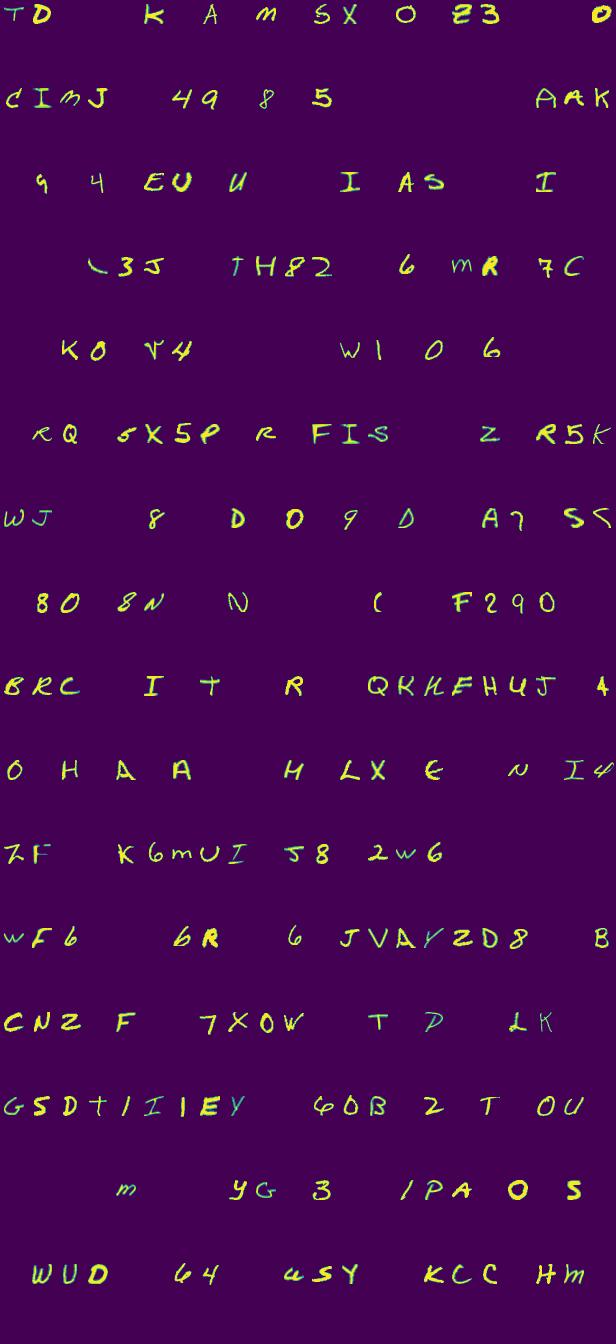 TD K A M SX O Z3 0
CIMJ 49 8 5 AAK
9 4 EUU U I AS I
L3J TH82 6 MR 7C
K0 V4 W1 0 6
RQ 5X5P R FIS Z R5K
WJ 8 D 0 9 D A7 5S
80 8N N C F290
BRC I T R QKHEHUJ 4
0 H A A H LX E N I4
ZF K6MUI J8 2W6
WF6 6R 6 JVAYZD8 B
CNZ F 7X0W T P LK
G5DT1II1EY 60B 2 T OU
M YG 3 1PA 0 S
WUD 64 QSY KCC HM